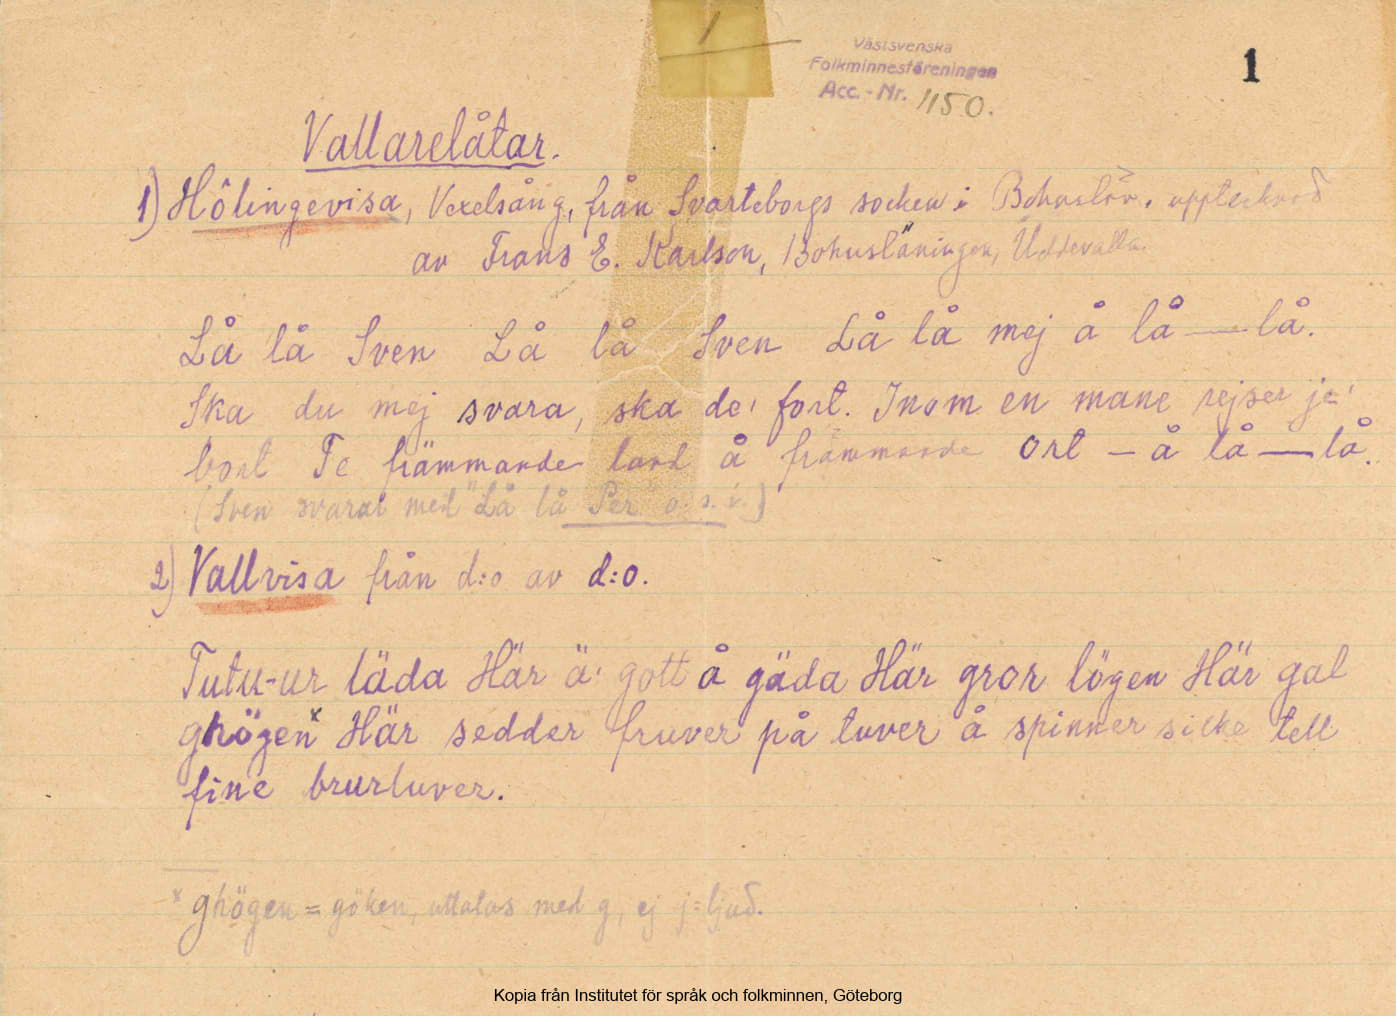 1
Västsvenska
Folkminnesföreningen
Acc. - Nr. 1150.
1
Vallarelåtar.
1) Hôlingevisa, Vexelsång, från Svarteborgs socken i Bohuslän, upptecknad
av Frans E. Karlson, Bohusläningen, Uddevalla.
Lå lå Sven Lå lå Sven Lå lå mej å lå — lå.
Ska du mej svara, ska de' fort. Inom en mane rejser je'
bort Te främmande land å främmande ort – å lå — lå.
(Sven svarar med "Lå lå Per o. s. v.)
2) Vallvisa från d:o av d:o.
Tutu-ur läda Här ä' gott å gäda Här gror lögen Här gal
ghögen x Här sedder fruver på tuver å spinner silke tell
fine brurluver.
x ghögen = göken, uttalas med g, ej j=ljud.
Kopia från Institutet för språk och folkminnen, Göteborg